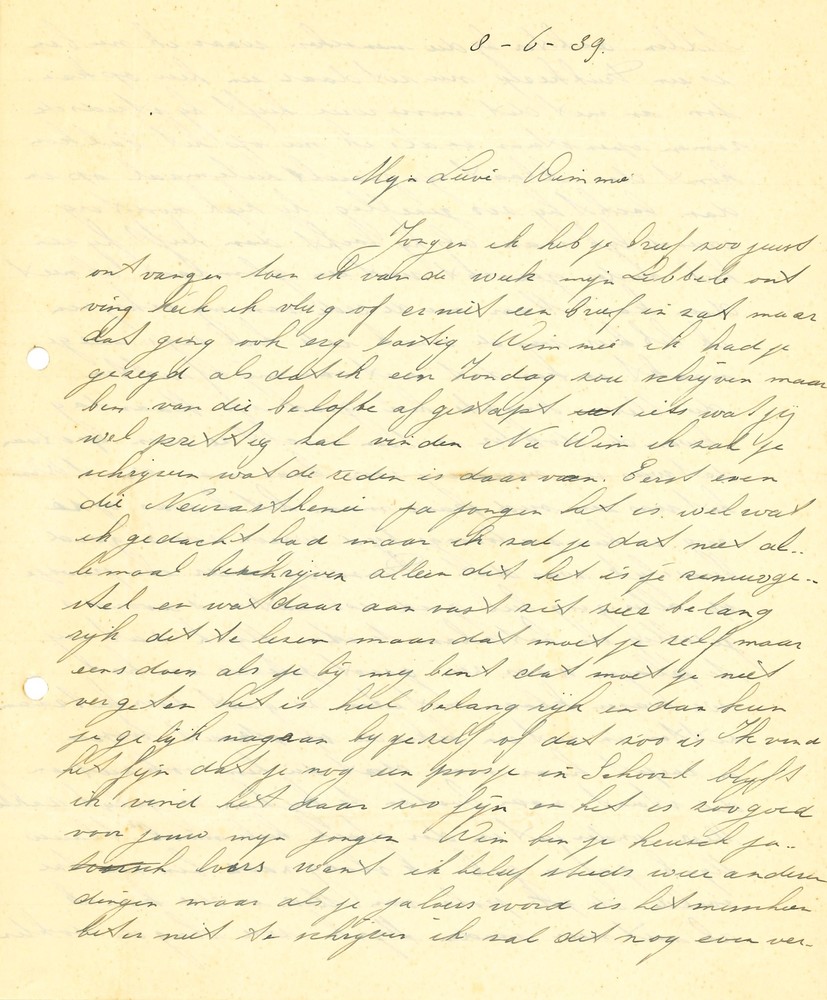 8-6-39.
Mijn Lieve Wimmie
Jongen ik heb je brief zoo juist
ontvangen toen ik van de week mijn Libbele ont
ving keek ik vlug of er niet een brief in zat maar
dat ging ook erg lastig Wimmie ik had je
gezegd als dat ik een Zondag zou schrijven maar
ben van die belofte afgestapt iets wat jij
wel prettig zal vinden Nu Wim ik zal je
schrijven wat de reden is daar van. Eerst even
die Neurasthenie ja jongen het is wel wat
ik gedacht had maar ik zal je dat niet al..
lemaal beschrijven alleen dit het is je zenuwge-
stel en wat daar aan vast zit zeer belang
rijk dit te lezen maar dat moet je zelf maar
eens doen als je bij mij bent dat moet je niet
vergeten het is heel belangrijk en dan kun
je gelijk nagaan bij jezelf of dat zoo is Ik vind
het fijn dat je nog een poosje in Schoorl blijft
ik vind het daar zoo fijn en het is zoo goed
voor jouw mijn jongen Wim ben je heusch ja..
loers want ik beleef steeds weer anderen
dingen maar als je jaloers word is het misschien
beter niet te schrijven ik zal dit nog even ver-